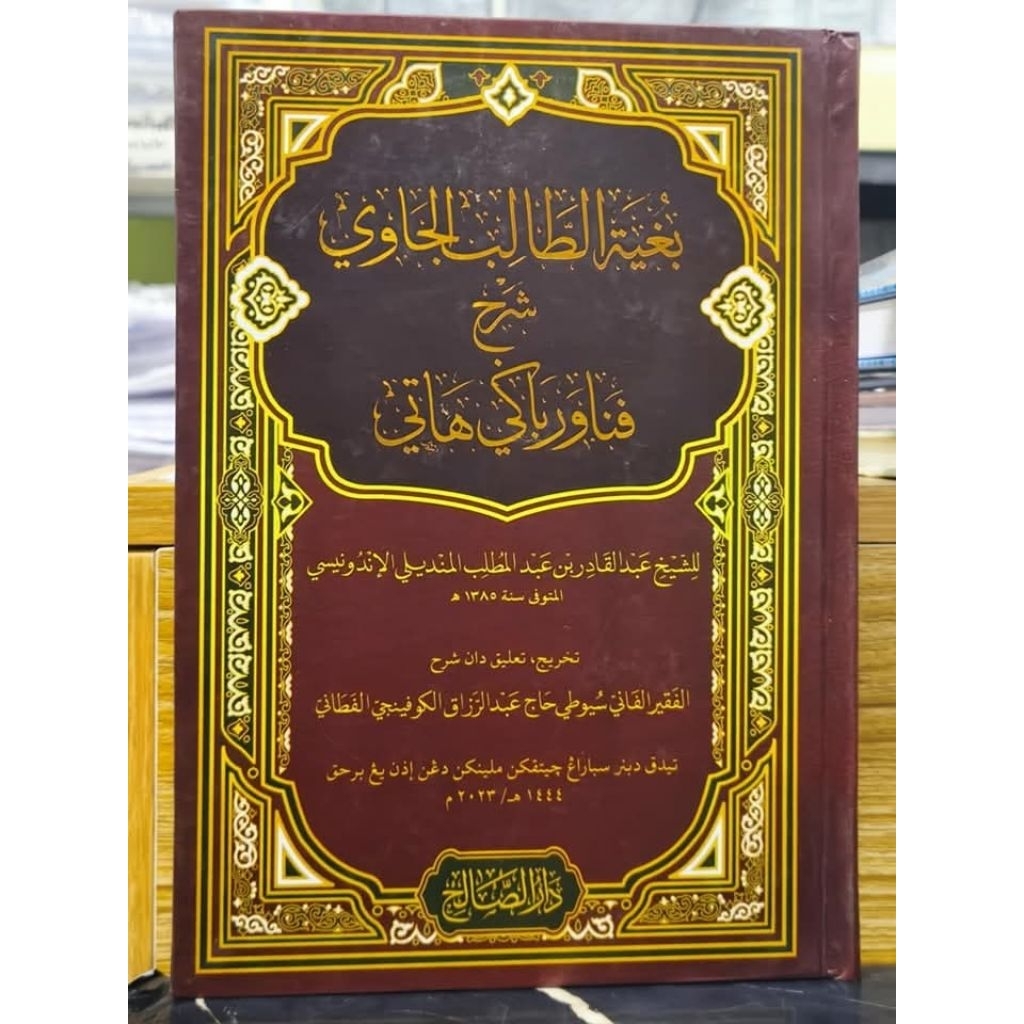 بُغْيَةُ الطَّالِبِ الجَاوِي
شَرْح
فناور باكي هاتي
لِلشَّيْخِ عَبْدِ القَادِرِ بْنِ عَبْدِ المُطَّلِبِ المَنْدِيلِي الإِنْدُونِيسِي
المتوفى سنة ١٣٨٥ هـ
تخريج، تعليق دان شرح
الفَقِيرِ الفَانِي سُيُوطِي حَاج عَبْد الرَّزَاق الكوفينجي الفَطَانِي
تيدق دبنر سبارڠ چيتقكن ملينكن دڠن إذن يڠ برحق
١٤٤٤ هـ/ ٢٠٢٣ م
دَارُ الصَّالِحِ